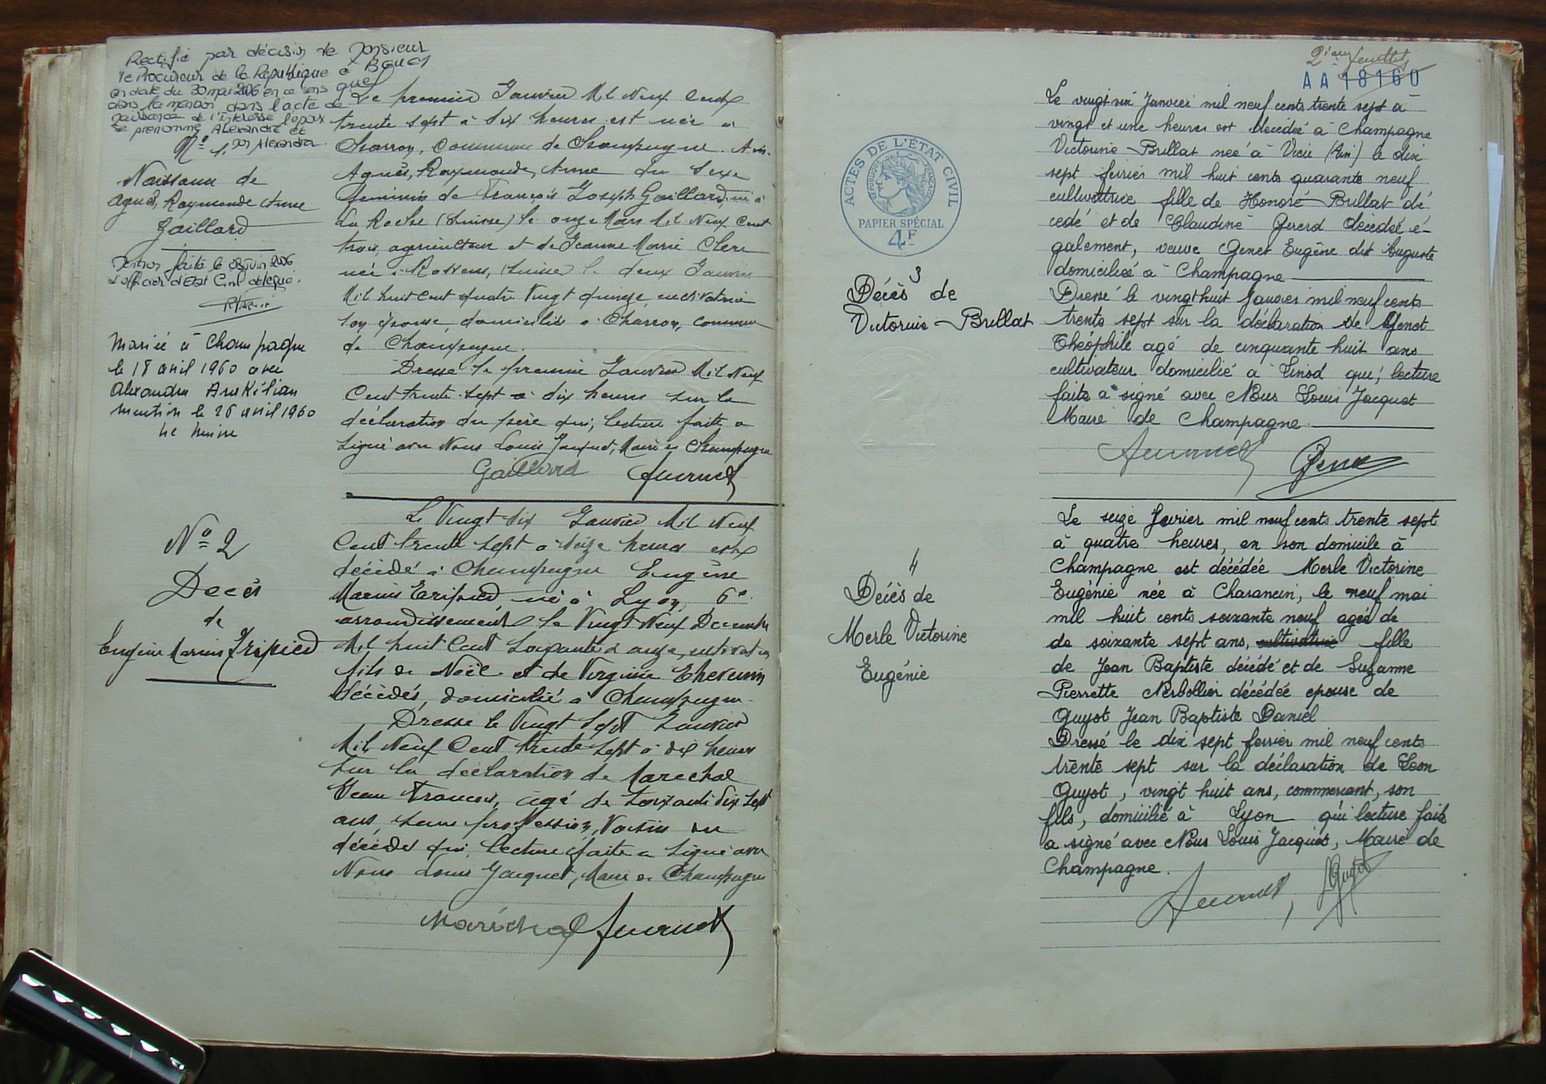 Rectifié par décision de Monsieur
le Procureur de la République à
en date du 30 mai 2006 en ce sens que
dans la mention dans l'acte de
naissance de l'intéressé
se prénomme Alexandre et
non Alexandra.
N° 1.
Naissance de
Agnès, Raymonde Anne
Gaillard
Mention faite le
L'officier d'état Civil délégué.
Mariée à Champagne
le 18 avril 1960 avec
Alexandra
mention le 26 avril 1960
Le Maire
Le premier Janvier Mil Neuf Cent
trente sept à dix heures est née à
Charron, Commune de Champagne.
Agnès, Raymonde, Anne du Sexe
féminin de François Joseph Gaillard, né à
La Roche (Suisse) le onze Mars Mil Neuf Cent
trois, agriculteur et de Jeanne Marie Clerc
née à Rossens, Suisse le deux Janvier
Mil huit Cent quatre Vingt quinze, cultivatrice
son épouse, domiciliés à Charron, commune
de Champagne.
Dressé le premier Janvier Mil Neuf
Cent trente sept à dix heures sur la
déclaration du père qui, lecture faite, a
signé avec Nous Louis Jacquet, Maire de Champagne
Gaillard
N° 2
Décès
de
Eugène Marius
Le Vingt six Janvier Mil Neuf
Cent trente sept à heures est
décédé à Champagne Eugène
Marius né à Lyon, 6e
arrondissement le Vingt Neuf Décembre
Mil huit Cent Soixante et onze, cultivateur
fils de Noël et de Virginie
décédés, domicilié à Champagne.
Dressé le Vingt Sept Janvier
Mil Neuf Cent trente sept à dix heures
sur la déclaration de Marechal
Jean François, âgé de Soixante dix Sept
ans, sans profession, Voisin du
décédé qui, Lecture faite a Signé avec
Nous Louis Jacquet, Maire de Champagne
Maréchal
2ième feuillet
AA 18160
ACTES DE L'ETAT CIVIL
PAPIER SPÉCIAL
4F
3
Décès de
Victorine Brillat
Le vingt six Janvier mil neuf cents trente sept à
vingt et une heures est décédée à Champagne
Victorine Brillat née à Vieu (Ain) le dix
sept février mil huit cents quarante neuf
cultivatrice fille de Honoré Brillat dé
cédé et de Claudine décédée é-
galement, veuve Genet Eugène dit Auguste
domiciliée à Champagne
Dressé le vingt huit Janvier mil neuf cents
trente sept sur la déclaration de Genet
Théophile agé de cinquante huit ans
cultivateur domicilié à qui, lecture
faite a signé avec Nous Louis Jacquet
Maire de Champagne.
4
Décès de
Merle Victorine
Eugénie
Le seize février mil neuf cents trente sept
à quatre heures, en son domicile à
Champagne est décédée Merle Victorine
Eugénie née à Charancin, le neuf mai
mil huit cents soixante neuf agée de
de soixante sept ans, cultivatrice fille
de Jean Baptiste décédé et de Suzanne
Pierrette décédée épouse de
Guyot Jean Baptiste Daniel
Dressé le dix sept fevrier mil neuf cents
trente sept sur la déclaration de Léon
Guyot, vingt huit ans, commercant, son
fils, domicilié à Lyon qui lecture faite
a signé avec Nous Louis Jacquet, Maire de
Champagne.